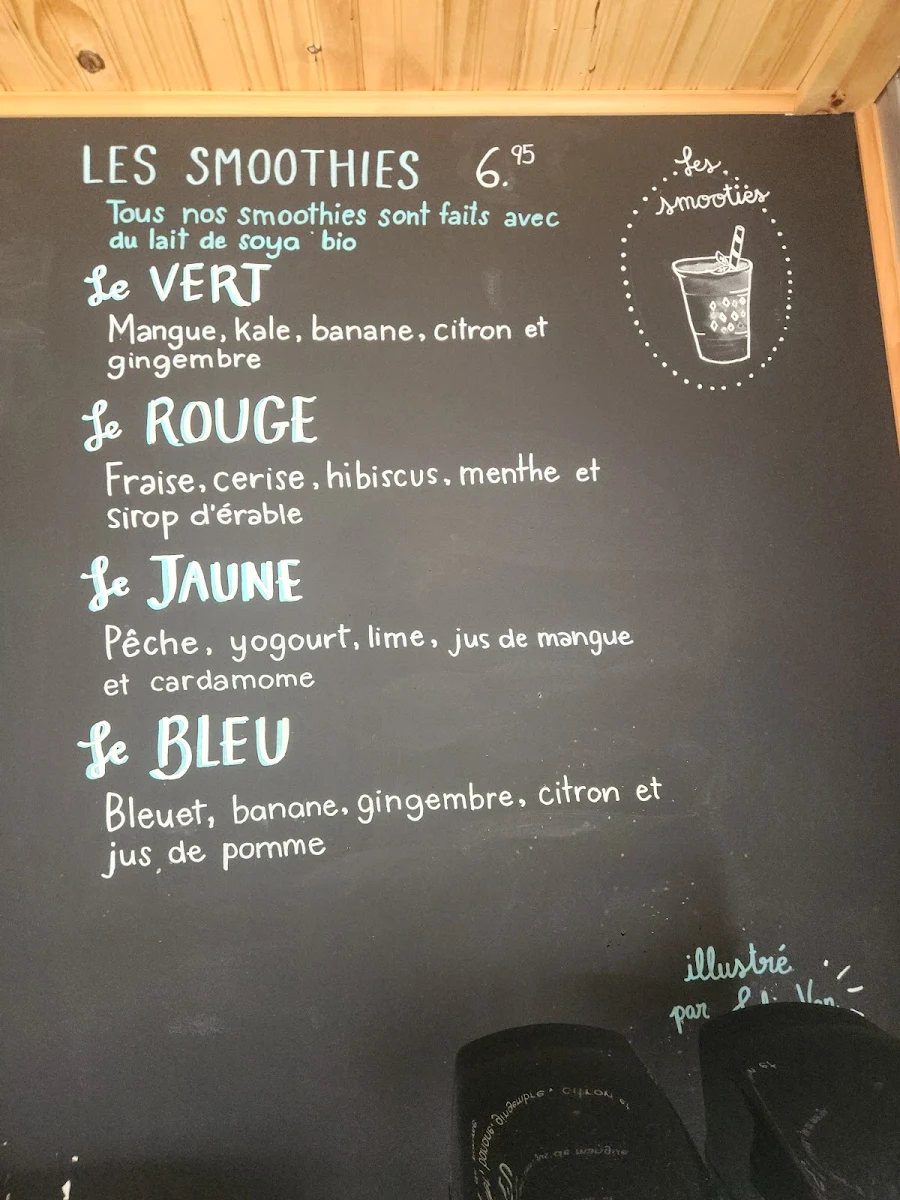 LES SMOOTHIES 6.95
Tous nos smoothies sont faits avec
du lait de soya bio
Le VERT
Mangue, kale, banane, citron et
gingembre
Le ROUGE
Fraise, cerise, hibiscus, menthe et
sirop d'érable
Le JAUNE
Pêche, yogourt, lime, jus de mangue
et cardamome
Le BLEU
Bleuet, banane, gingembre, citron et
jus de pomme
Les
smooties
illustré
par